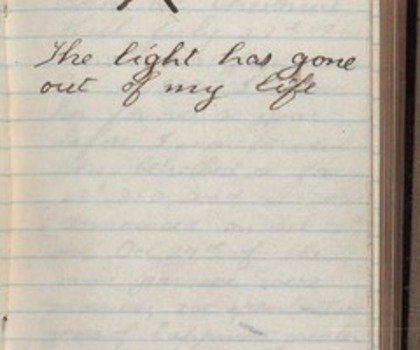 The light has gone
out of my life